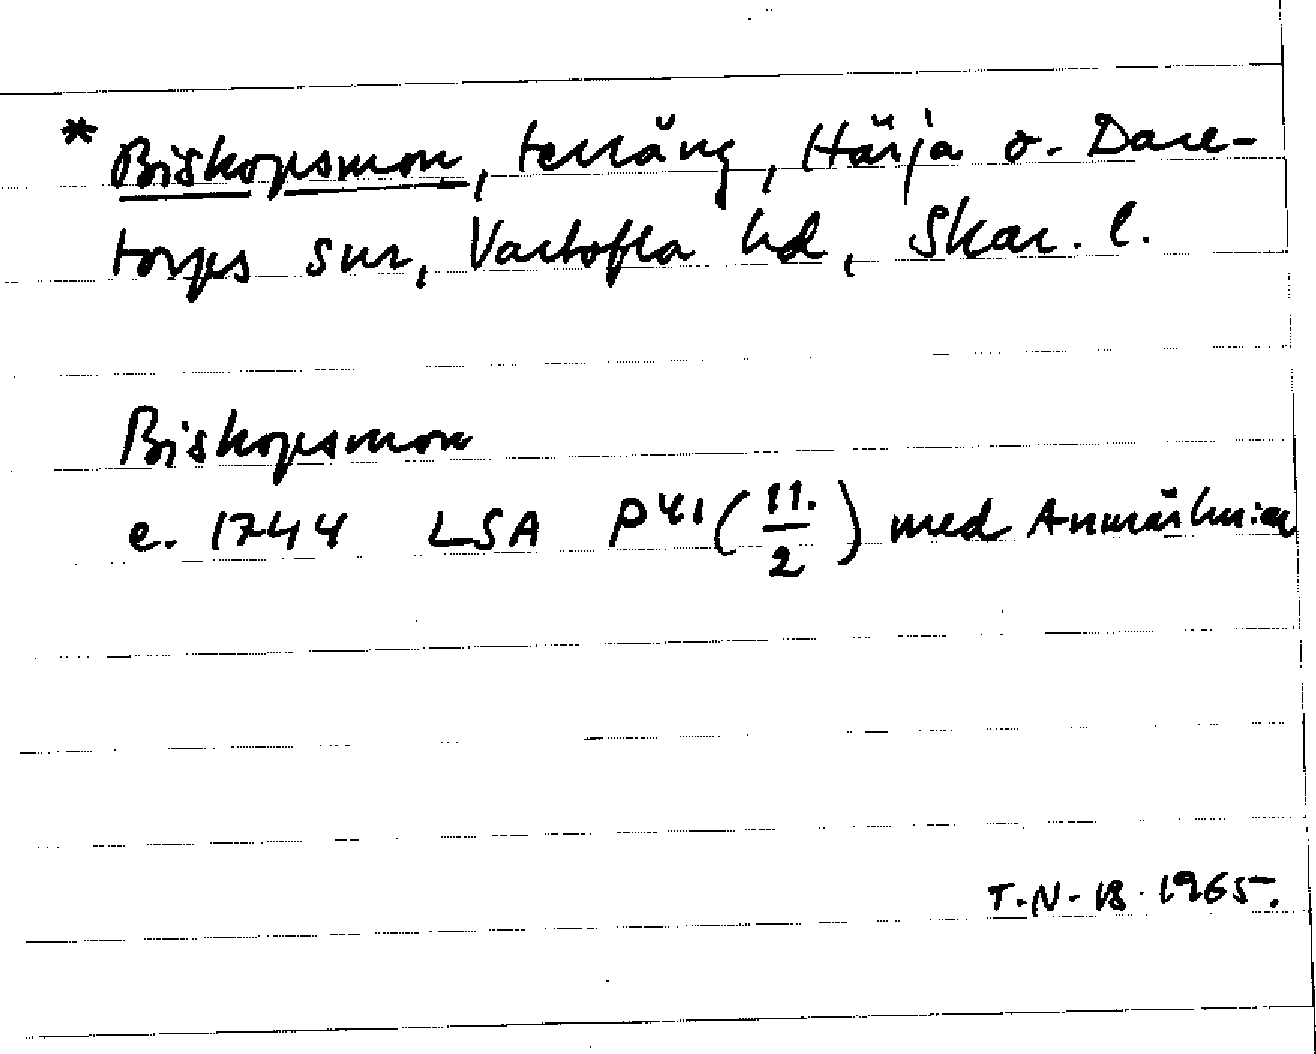 * Biskopsmon, terräng, Härja o. Dare-
torps snr, Vartofta hd, Skar. l.
Biskopsmon
e. 1744 LSA P41 (11./2) med
T.N-B. 1965.